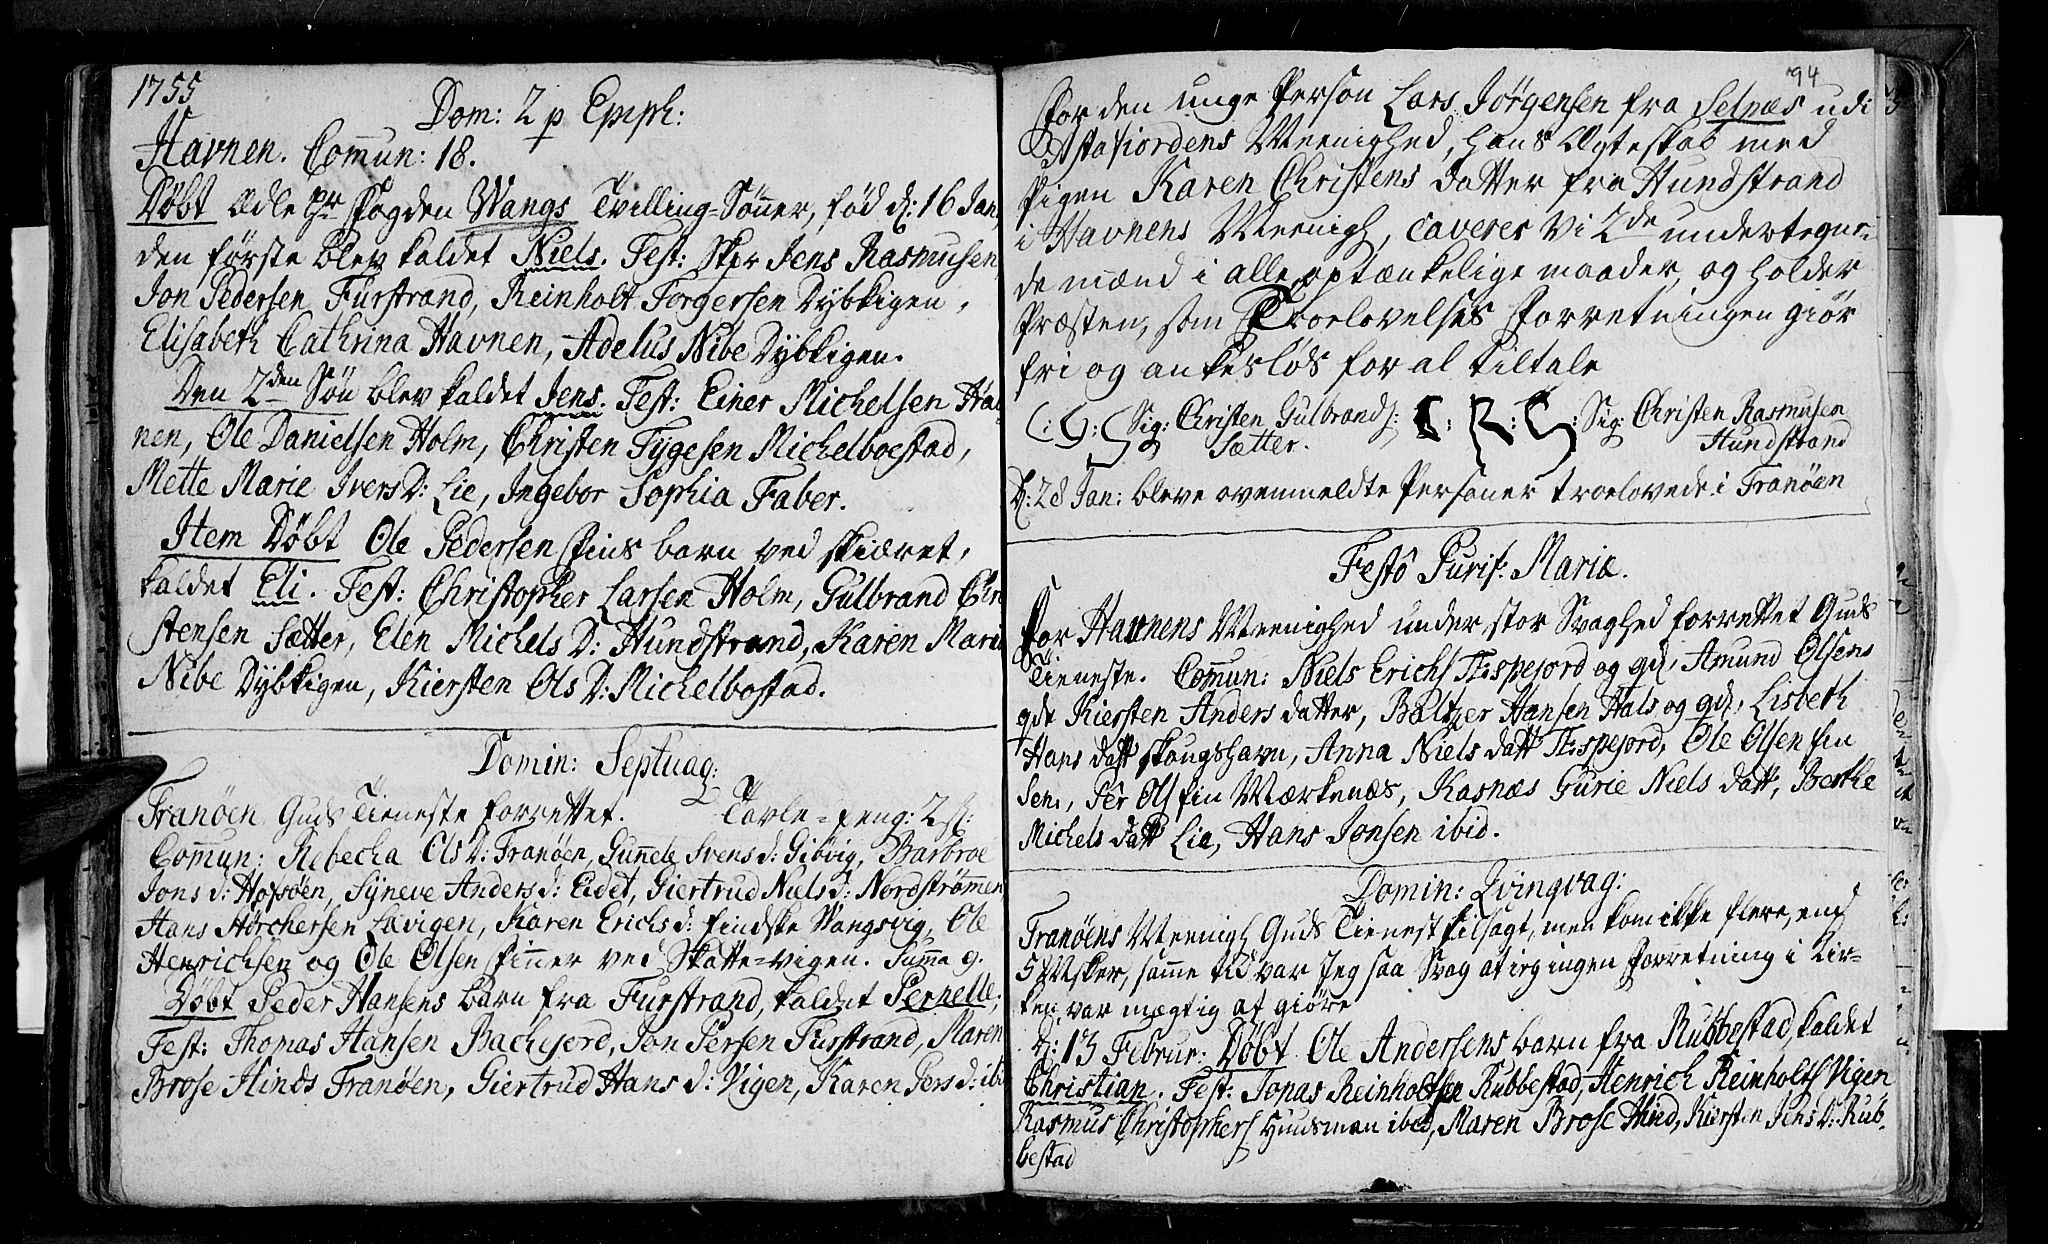 1755
Dom: 2 p Epiph:
Havnen. Com̄un: 18.
Døbt Ædle Hr Fogden Wangs Tvilling-Søn̄er, fød d: 16 Jan:
den første blev kaldet Niels. Test: Skpr Jens Rasmusen
Jon Pedersen Furstrand, Reinholt Torgersen Dybkigen,
Elisabeth Cathrina Havnen, Adelus Nibe Dybkigen.
Den 2den Søn blev kaldet Jens. Test: Einer Michelsen Hav-
nen, Ole Danielsen Holm, Christen Tygesen Michelboestad,
Mette Marie Ivers D: Lie, Ingebor Sophia Faber.
Item Døbt Ole Pedersen Fins barn ved Skiæret,
kaldet Eli. Test: Christopher Larsen Holm, Gulbrand Chri
stensen Sætter, Elen Michels D: Hundstrand, Karen Marie
Nibe Dybkigen, Kiersten Ols D: Michelbostad.
Domin: Septuag:
Tranöen Guds Tieneste forrettet. Tavle-peng: 2 ß:
Com̄un: Rebecha Ols D: Tranöen, Gun̄ele Svens d: Gibvig, Barbroe
Jons d: Hofsöen, Syneve Anders d: Eidet, Giertrud Niels d: Nordstrømen,
Hans Hörchersen Lævigen, Karen Erichs d: findske Vangsvig, Ole
Henrichsen og Ole Olsen Fin̄er ved Skatte-vigen. Sum̄a 9.
Døbt Peder Hansens barn fra Furstrand, kaldet Pernelle,
Test: Thomas Hansen Bachejord, Jon Persen Furstrand, Maren
Brose Hinds Tranöen, Giertrud Hans d: Vigen, Karen Pers d: ibid
94
For den unge Person Lars Jörgensen fra Selnæs udi
Astafiordens Meenighed, hans Ægteskab med
Pigen Karen Christens datter fra Hundstrand
i Havnens Meenigh, caveres vi 2de undertegne-
de mænd i alle optænkelige maader, og holder
Præsten, som Troelovelses Forretningen giör
fri og ankesløs for al tiltale
C: G: S Sig: Christen Gulbrands: C: R: S: Sig: Christen Rasmusen
Sætter. Hundstrand
D: 28 Jan: bleve ovenmeldte Personer troelovede i Tranöen
Festô Purif: Mariæ.
For Havnens Meenighed under stor Svaghed forrettet Guds
Tieneste. Com̄un: Niels Erichs Æspejord og qd, Amund Olsens
qde Kiersten Anders datter, Baltzer Hansen Hals og qd, Lisbeth
Hans datt Skougshavn, Anna Niels datt Æspejord, Ole Olsen fin
Sen:, Per Ols fin Mærkenæs, Kasnæs Gurie Niels datt, Berthe
Michels datt Lie, Hans Jonsen ibid.
Domin: Qvinqvag:
Tranöens Meenigh Guds Tienest tilsagt, men kom ikke flere, end
5 Msker, samme tid var Jeg saa Svag at ieg ingen Forretning i Kir-
ken var mægtig at giöre
D: 13 Februr: Døbt Ole Andersens barn fra Rubbestad, kaldet
Christian. Test: Jonas Reinholtsen Rubbestad, Henrich Reinholts Vigen
Rasmus Christophers Huusman ibid, Maren Brose Hind, Kiersten Jens D: Rub-
bestad